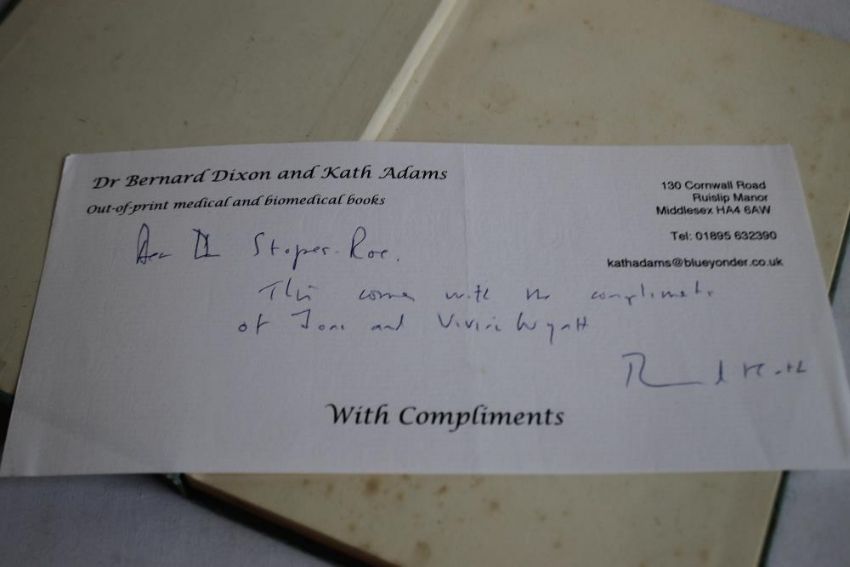 Dr Bernard Dixon and Kath Adams
Out-of-print medical and biomedical books
130 Cornwall Road
Ruislip Manor
Middlesex HA4 6AW
Tel: 01895 632390
kathadams@blueyonder.co.uk
Dear Stopes-Roe.
This comes with the compliments
of and Wyatt
With Compliments